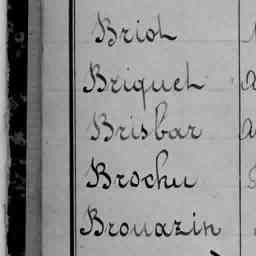 Briot
Briquet
Brisbar
Brochu
Brouazin